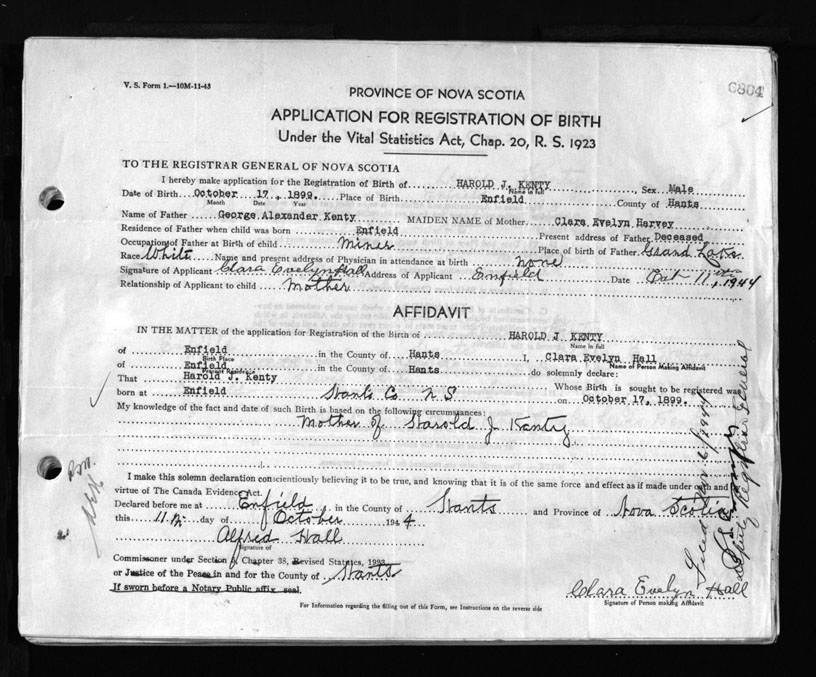 V. S. Form 1.—10M-11-43
6804
PROVINCE OF NOVA SCOTIA
APPLICATION FOR REGISTRATION OF BIRTH
Under the Vital Statistics Act, Chap. 20, R. S. 1923
TO THE REGISTRAR GENERAL OF NOVA SCOTIA
I hereby make application for the Registration of Birth of HAROLD J. KENTY, Sex Male
Name in full
Date of Birth October 17, 1899. Place of Birth Enfield County of Hants
Month Date Year
Name of Father George Alexander Kenty MAIDEN NAME of Mother Clara Evelyn Harvey
Residence of Father when child was born Enfield Present address of Father Deceased
Occupation of Father at Birth of child Miner Place of birth of Father Grand Lake
Race White Name and present address of Physician in attendance at birth none
Signature of Applicant Clara Evelyn Hall Address of Applicant Enfield Date Oct 11, 1944
Relationship of Applicant to child Mother
AFFIDAVIT
IN THE MATTER of the application for Registration of the Birth of HAROLD J. KENTY
Name in full
of Enfield in the County of Hants I, Clara Evelyn Hall
Birth Place Name of Person Making Affidavit
of Enfield in the County of Hants do solemnly declare:
Present Residence
That Harold J. Kenty Whose Birth is sought to be registered was
born at Enfield Hants Co N S on October 17, 1899.
My knowledge of the fact and date of such Birth is based on the following circumstances:
Mother of Harold J Kenty
I make this solemn declaration conscientiously believing it to be true, and knowing that it is of the same force and effect as if made under oath and
virtue of The Canada Evidence Act.
Declared before me at Enfield in the County of Hants and Province of Nova Scotia
this 11th day of October 1944
Alfred Hall
Signature of
Commissoner under Section 6, Chapter 38, Revised Statutes, 1923
or Justice of the Peace in and for the County of Hants
If sworn before a Notary Public affix seal.
Clara Evelyn Hall
Signature of Person making Affidavit
For Information regarding the filling out of this Form, see Instructions on the reverse side
Deputy Registrar General